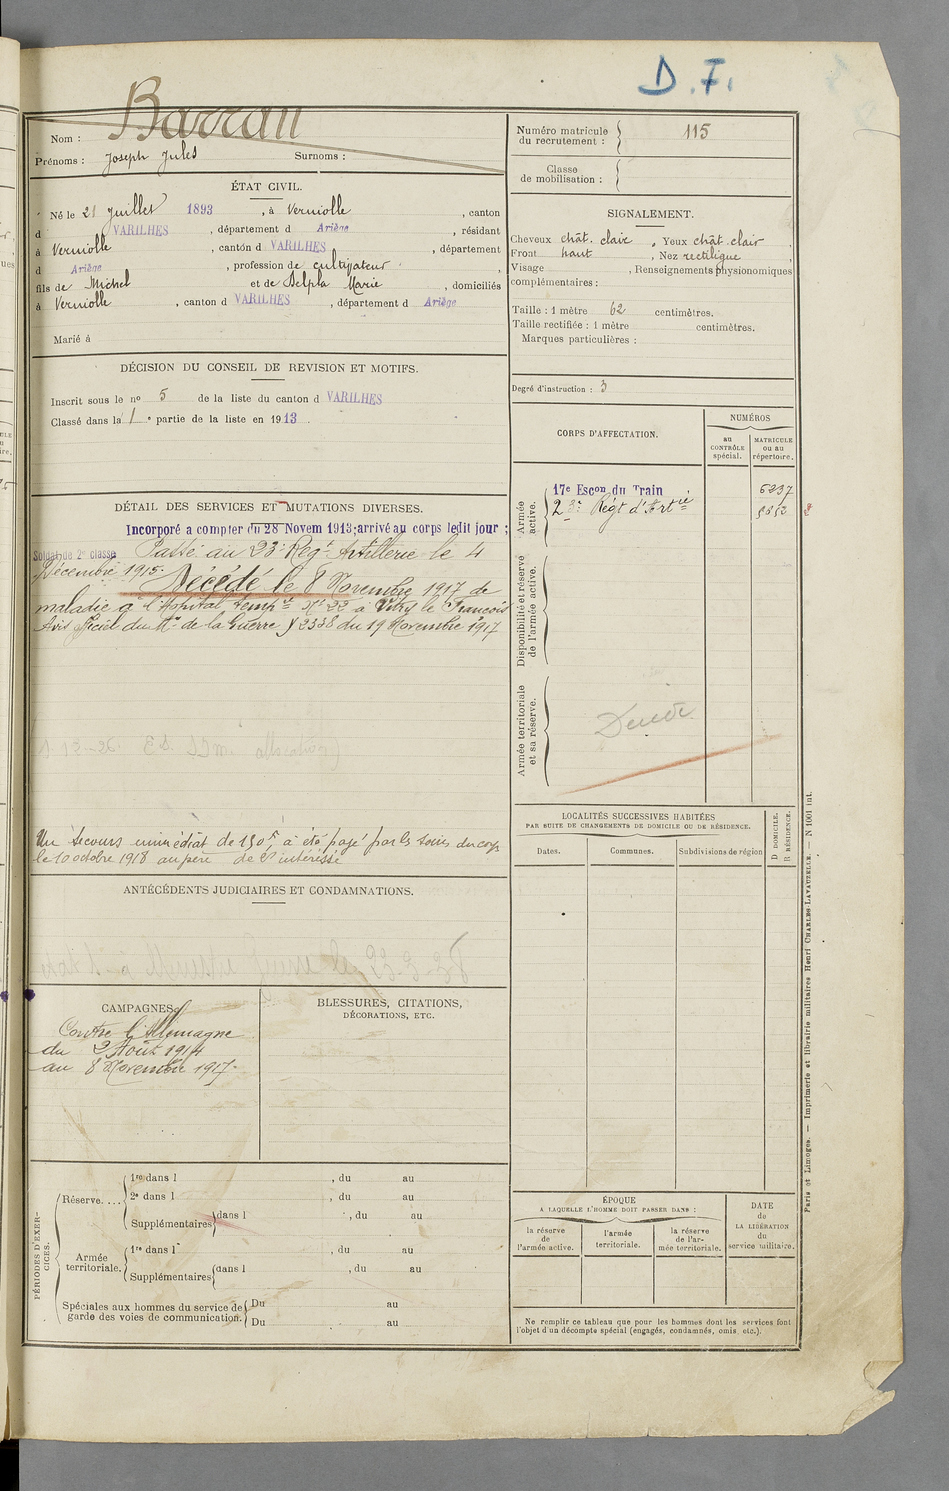 D. F.
Barran
Nom :
Prénoms : Joseph Jules Surnoms :
ÉTAT CIVIL.
Né le 21 Juillet 1893, à Verniolle, canton
d VARILHES, département d Ariège, résidant
à Verniolle, canton d VARILHES, département
d Ariège, profession de cultivateur,
fils de Michel et de Delpla Marie, domiciliés
à Verniolle, canton d VARILHES, département d Ariège
Marié à
DÉCISION DU CONSEIL DE REVISION ET MOTIFS.
Inscrit sous le no 5 de la liste du canton d VARILHES
Classé dans la 1 e partie de la liste en 1913.
DÉTAIL DES SERVICES ET MUTATIONS DIVERSES.
Incorporé a compter du 28 Novem 1913; arrivé au corps ledit jour ;
Soldat de 2e classe Passé au 23e Régt Artillerie le 4
Décembre 1915. Décédé le 8 Novembre 1917 de
maladie à l'Hopital tempre No 22 à Vitry le François
Avis officiel du Mre de la Guerre 2338 du 19 Novembre 1917
Un secours immédiat de 150f a été payé par les soins du corps
le 10 octobre 1918 au père de l'intéressé
ANTÉCÉDENTS JUDICIAIRES ET CONDAMNATIONS.
CAMPAGNES.
Contre l'Allemagne
du 2 Août 1914
au 8 Novembre 1917.
BLESSURES, CITATIONS,
DÉCORATIONS, ETC.
PÉRIODES D'EXERCICES.
Réserve....
1re dans l , du au
2e dans l , du au
Supplémentaires dans l , du au
Armée territoriale.
1re dans l , du au
Supplémentaires dans l , du au
Spéciales aux hommes du service de Du au
garde des voies de communication. Du au
Numéro matricule
du recrutement : 115
Classe
de mobilisation :
SIGNALEMENT.
Cheveux chât. clair, Yeux chât. clair
Front haut, Nez rectiligne
Visage , Renseignements physionomiques
complémentaires :
Taille : 1 mètre 62 centimètres.
Taille rectifiée : 1 mètre centimètres.
Marques particulières :
Degré d'instruction : 3
CORPS D'AFFECTATION.
NUMÉROS
au
CONTRÔLE
spécial.
MATRICULE
ou au
répertoire.
Armée
active.
17e Escon du Train 6237
23e Régt d'Artie
Disponibilité et réserve
de l'armée active.
Armée territoriale
et sa réserve.
LOCALITÉS SUCCESSIVES HABITÉES
PAR SUITE DE CHANGEMENTS DE DOMICILE OU DE RÉSIDENCE.
Dates.
Communes.
Subdivisions de région
D DOMICILE.
R RÉSIDENCE.
ÉPOQUE
A LAQUELLE L'HOMME DOIT PASSER DANS :
la réserve
de
l'armée active.
l'armée
territoriale.
la réserve
de l'ar-
mée territoriale.
DATE
de
LA LIBÉRATION
du
service militaire.
Ne remplir ce tableau que pour les hommes dont les services font
l'objet d'un décompte spécial (engagés, condamnés, omis, etc.).
Paris et Limoges. — Imprimerie et librairie militaires Henri CHARLES-LAVAUZELLE. — N 1001 int.